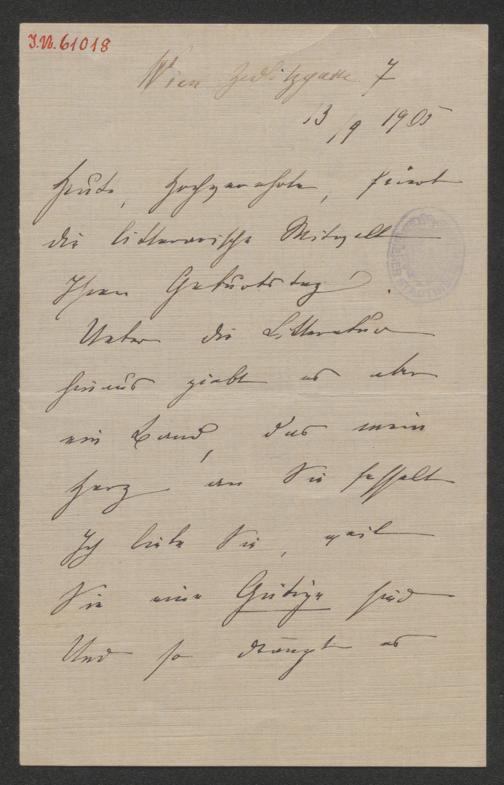 J.N. 61018
Wien Zedlitzgasse 7
13/9 1905
Heute, Hochverehrte, feiert
die litterarische Mitwelt
Ihren Geburtstag.
Ueber die Litteratur
hinaus giebt es aber
ein Band, das mein
Herz an Sie fesselt
Ich liebe Sie, weil
Sie eine Gütige sind
Und so drängt es